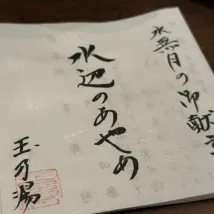 水無月の御献立
水辺のあやめ
玉の湯